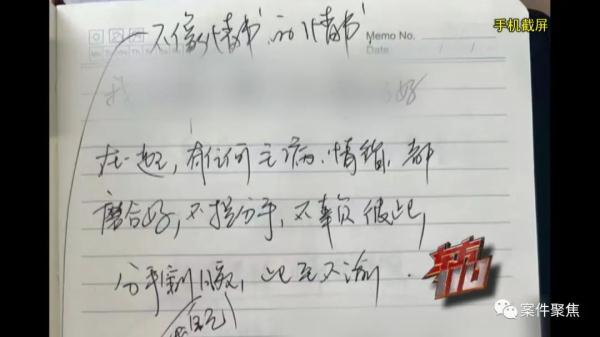 手机截屏
不像'情书'的'情书'
Memo No.
Date
我
好
在一起,有任何毛病、情绪,都
磨合好,不提分手,不辜负彼此,
分手剁腿,此至不渝.
案件聚焦